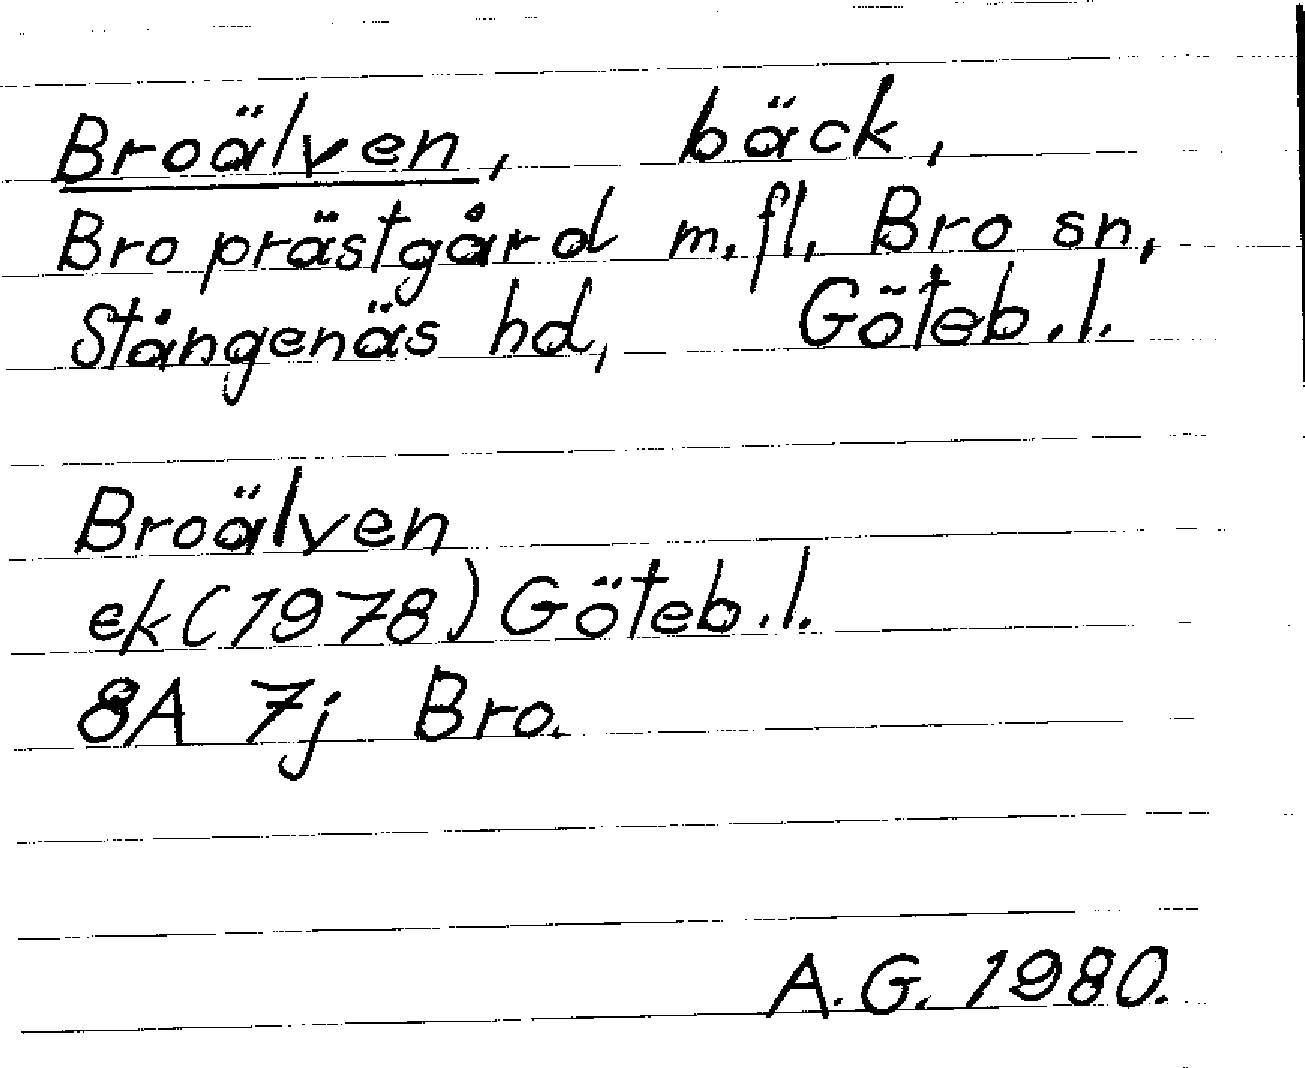 Broälven, bäck,
Bro prästgård m.fl. Bro sn,
Stångenäs hd, Göteb.l.
Broälven
ek(1978) Göteb.l.
8A 7j Bro.
A.G. 1980.